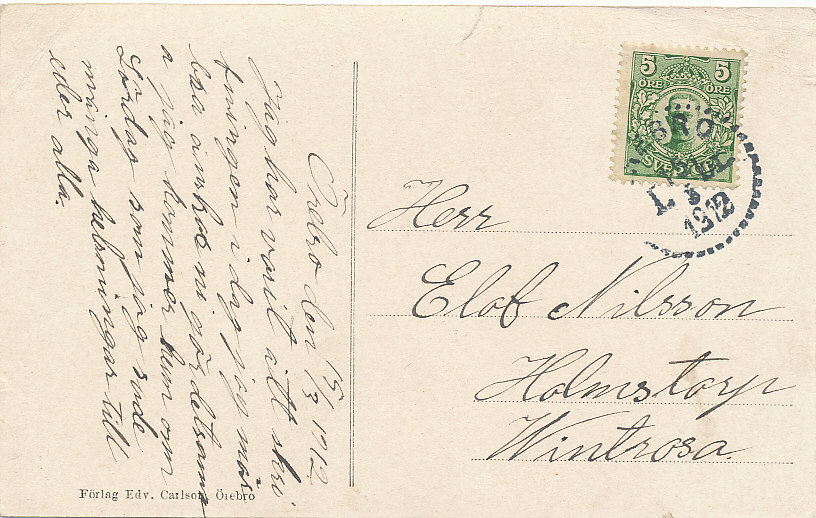 Örebro den 15/3 1912.
jag har varit att skri-
fningen i dag jag mår
bra önskar ni gör detsama
jag kommer hem om
Lördag som jag sade
många helsningar till
eder alla.
Förlag Edv. Carlson, Örebro
5 5
ÖRE ÖRE
SVERIGE
BRO
1912
Herr
Elof Nilsson
Holmstorp
Wintrosa